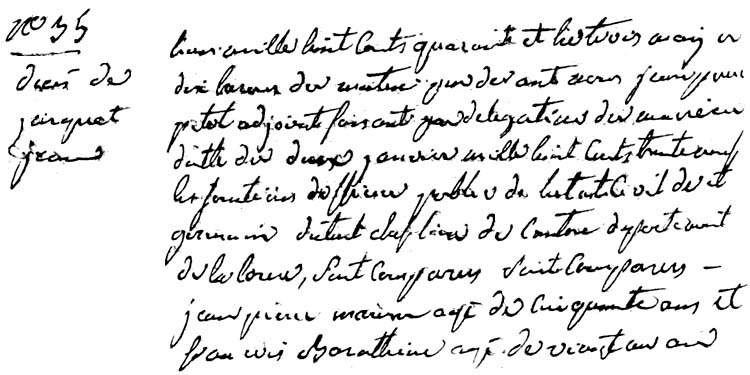 no 35
décès de
jacquet
jean
l'an mille huit cents quarante et le trois mai a
dix heures du matin par devant nous jean pierre
petit adjoint faisant par délégation du
dutte du deux janvier mille huit cents trente neuf
les fonctions d'officier public de l'etat civil de st
germain chef lieu de canton departement
de la loire, sont comparus sont comparus —
jean pierre agé de cinquante ans et
francois Barathieu agé de vingt un ans